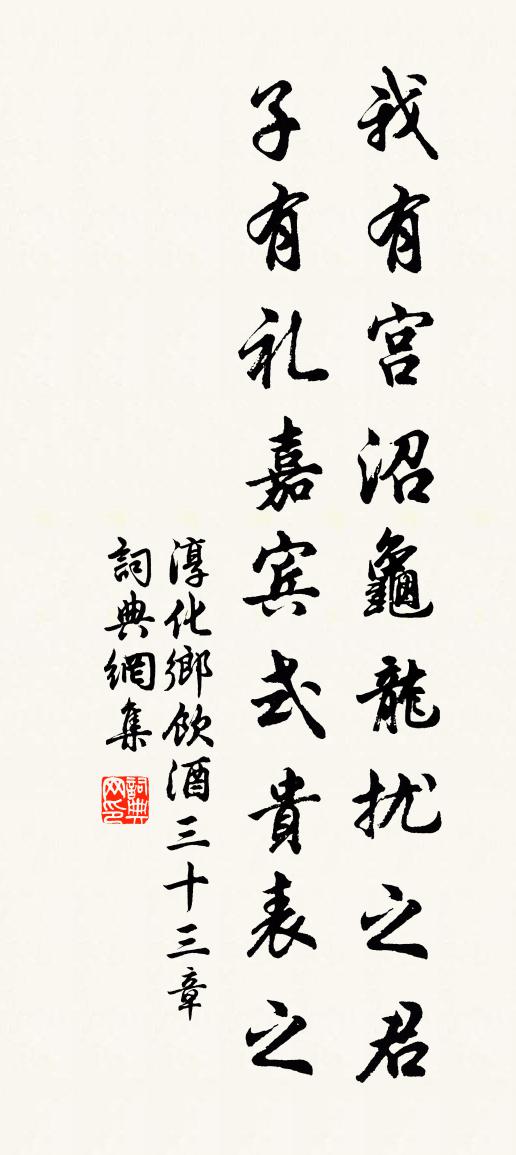 我有宫沼龜龍扰之君
子有礼嘉宾式貴表之
淳化鄉飲酒三十三章
詞典網集
詞典网印